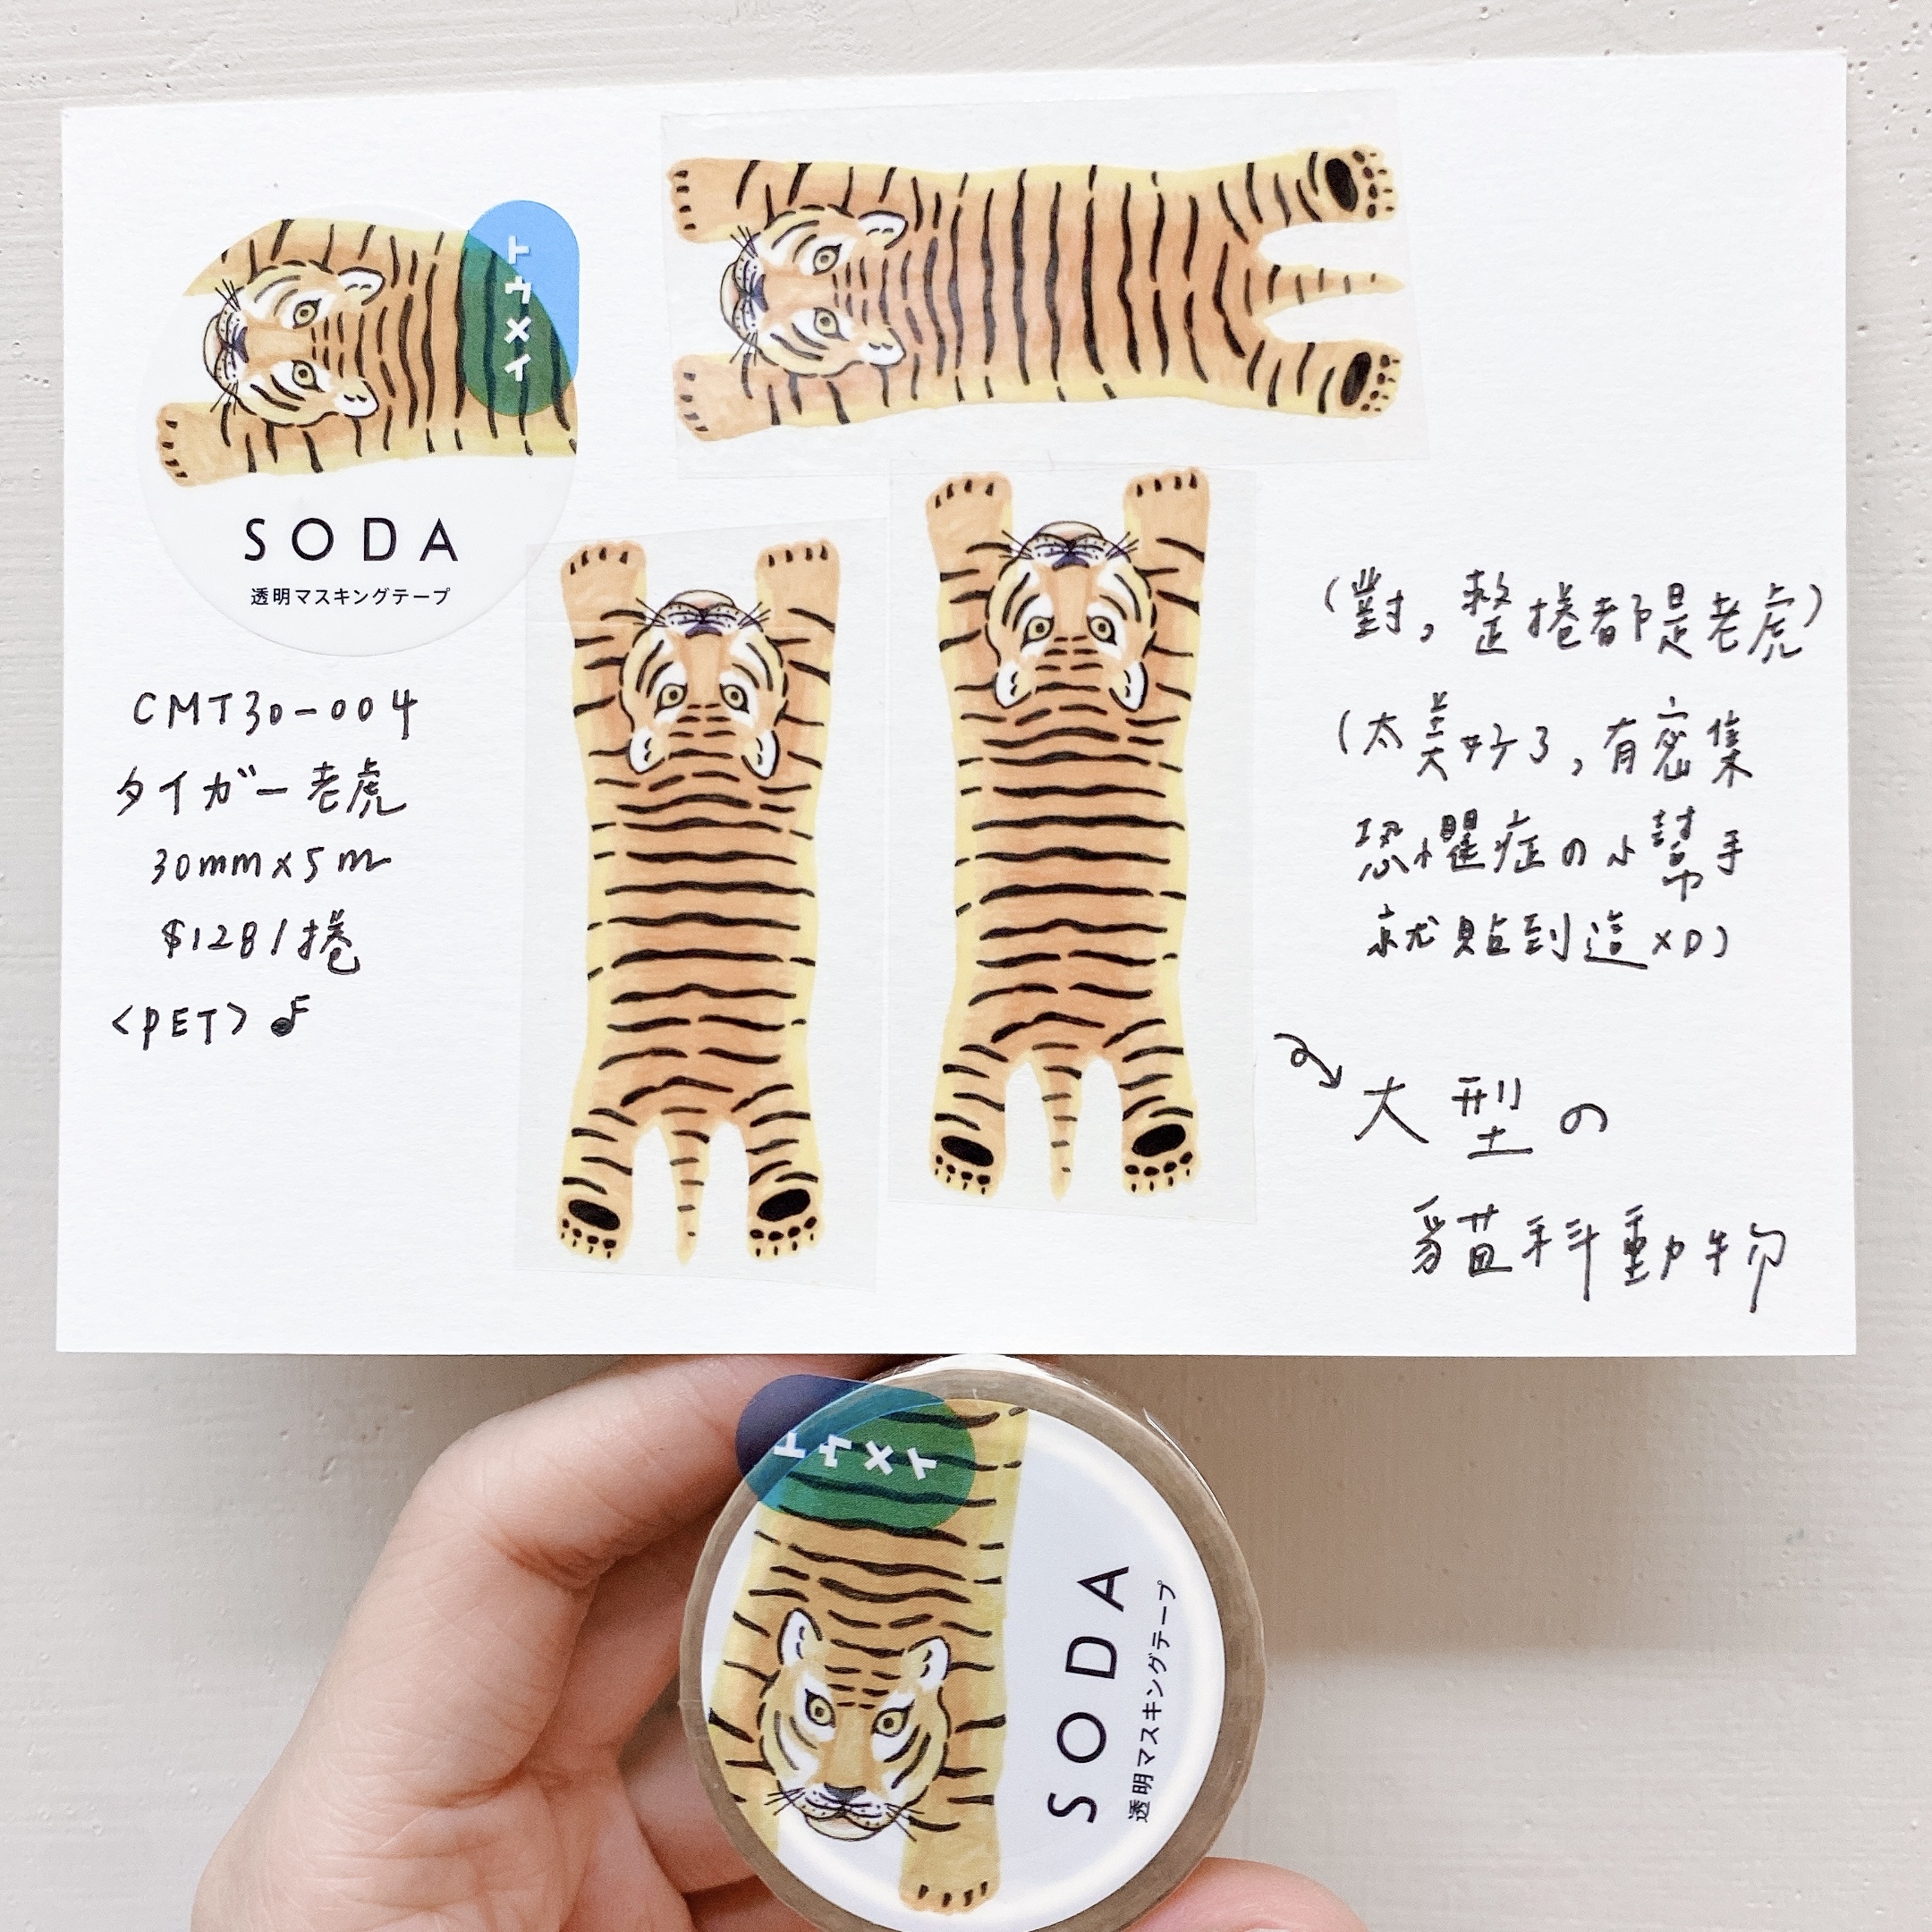 トウメイ
SODA
透明マスキングテープ
CMT30-004
タイガー 老虎
30mm×5m
$128/捲
<PET>♪
(對,整捲都是老虎)
(太美好了,有密集
恐懼症の小幫手
就貼到這XD)
大型の
貓科動物
トウメイ
SODA
透明マスキングテープ